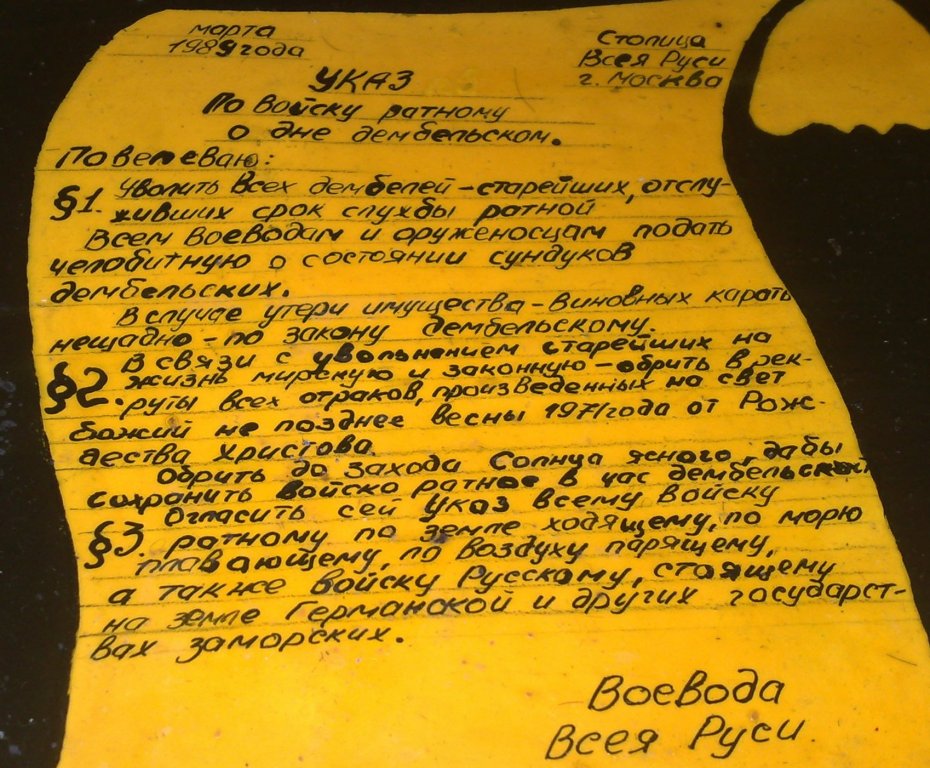 марта
1989 года
Столица
Всея Руси
г. Москва
УКАЗ
По войску ратному
о дне дембельском.
Повелеваю:
§1. Уволить всех дембелей - старейших, отслу-
живших срок службы ратной
Всем воеводам и оруженосцам подать
челобитную о состоянии сундуков
дембельских.
В случае утери имущества - виновных карать
нещадно - по закону дембельскому.
§2. В связи с увольнением старейших на
жизнь мирскую и законную - обрить в рек-
руты всех отраков, произведенных на свет
божий не позднее весны 1971 года от Рож-
дества Христова.
Обрить до захода Солнца ясного, дабы
сохранить войско ратное в час дембельский
§3. Огласить сей Указ всему войску
ратному по земле ходящему, по морю
плавающему, по воздуху парящему,
а также войску Русскому, стоящему
на земле Германской и других государст-
вах заморских.
Воевода
Всея Руси